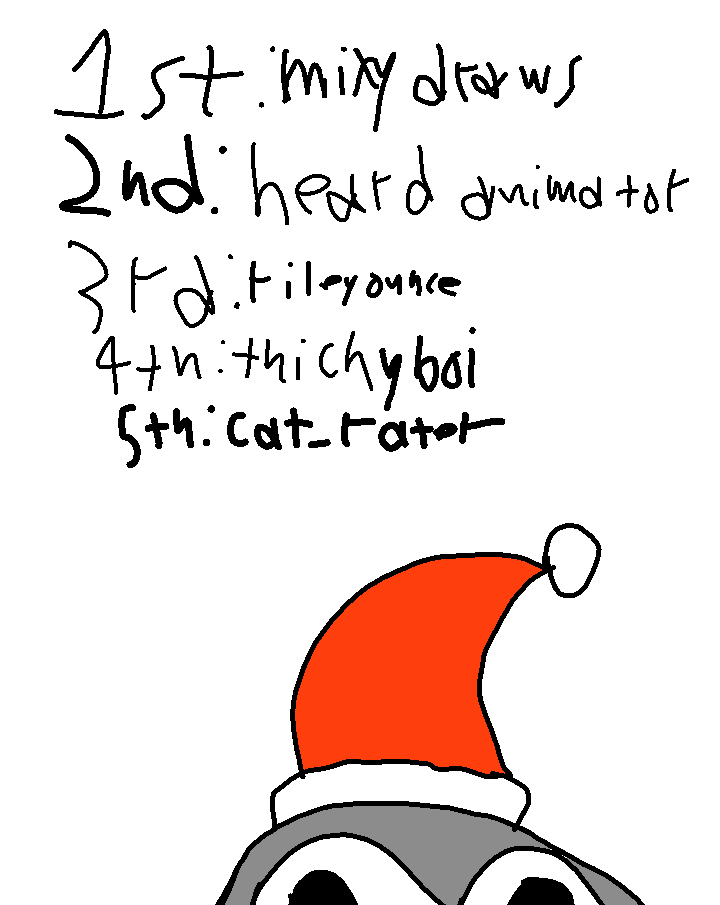 1st: mixy draws
2nd: heard animator
3rd: rileyounce
4th: thichyboi
5th: cat_rater